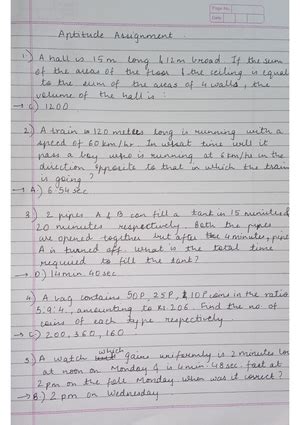 Page No.
Date
Aptitude Assignment
1) A hall is 15 m long & 12 m broad. If the sum
of the areas of the floor & the ceiling is equal
to the sum of the areas of 4 walls, the
volume of the hall is :
→ C) 1200
2) A train is 120 metres long is running with a
speed of 60 km/hr. In what time will it
pass a boy who is running at 6 km/hr in the
direction opposite to that in which the train
is going?
→ A.) 6.54 sec
3) 2 pipes A & B can fill a tank in 15 minutes &
20 minutes respectively. Both the pipes
are opened together but after 4 minutes, pipe
A is turned off. what is the total time
required to fill the tank?
→ D) 14 min. 40 sec.
4) A bag contains 50P, 25P, & 10P coins in the ratio
5:9:4, amounting to Rs. 206. Find the no. of
coins of each type respectively.
→ C) 200, 360, 160
5) A watch which gains uniformly is 2 minutes low
at noon on Monday & is 4 min. 48 sec. fast at
2 pm on the following Monday. when was it correct?
→ B) 2 pm on Wednesday.